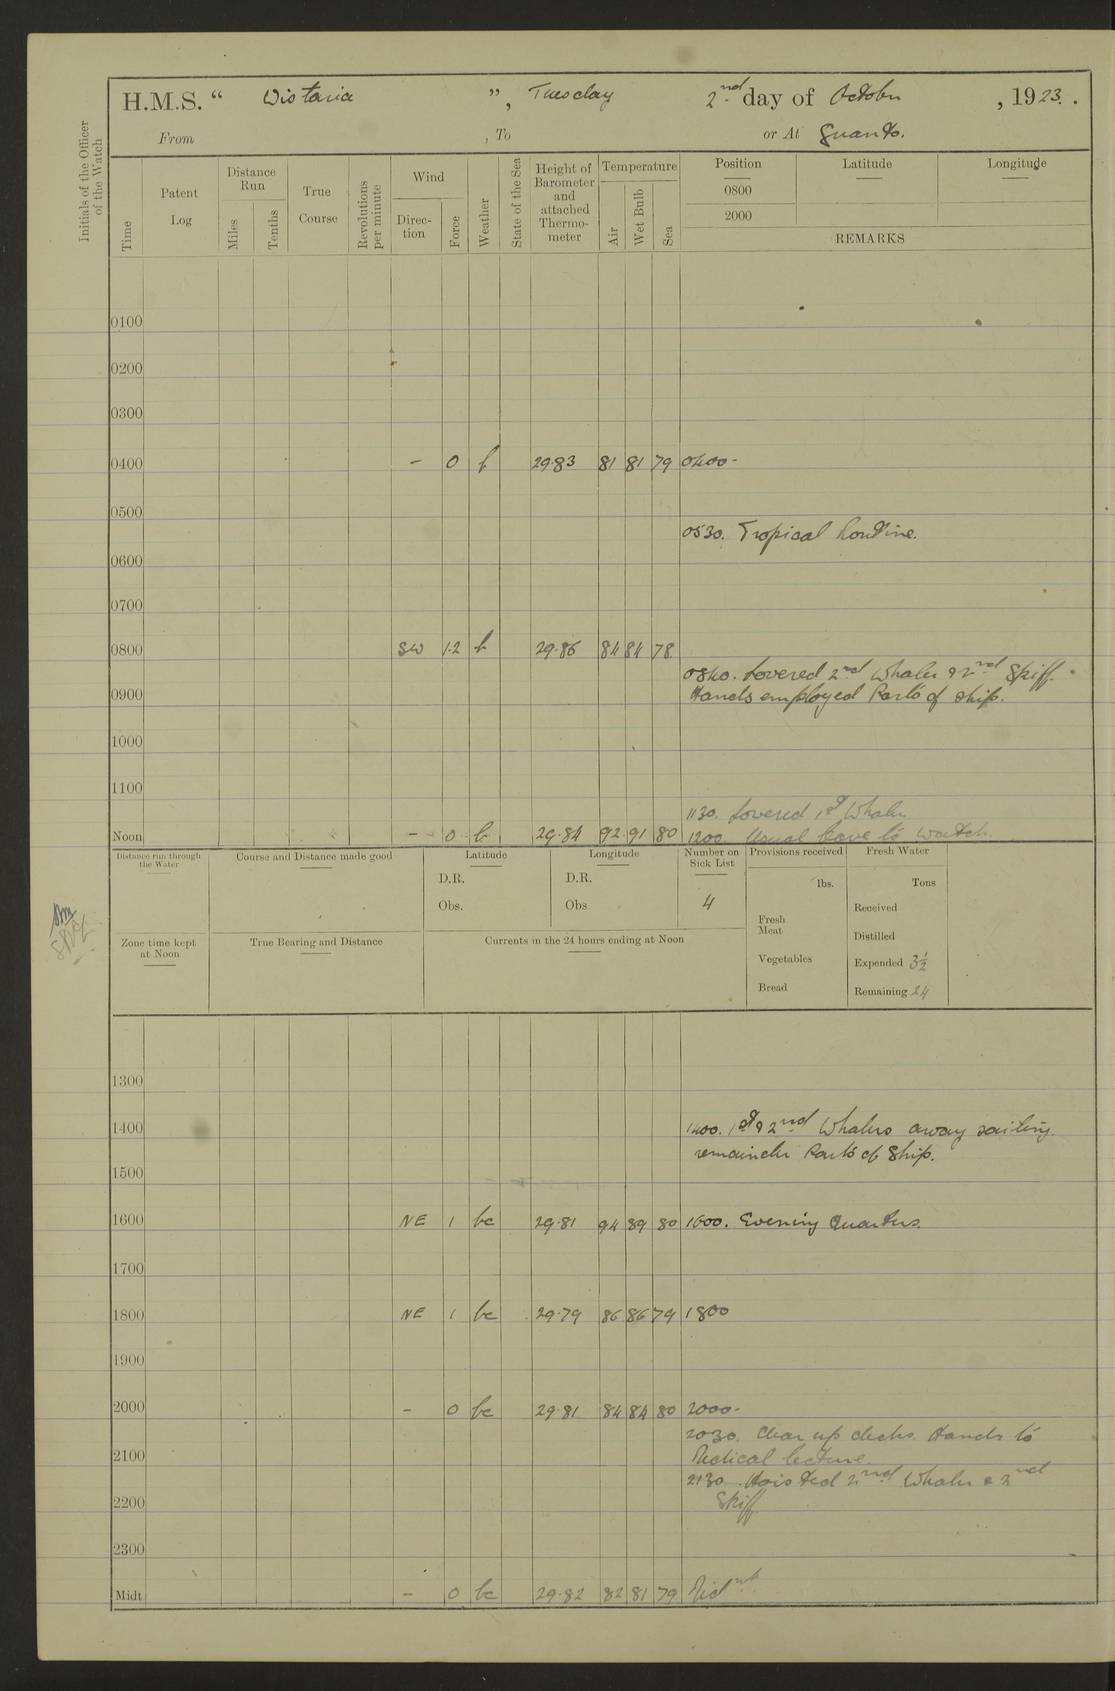 H.M.S. “ Wistaria ”, Tuesday 2nd day of October, 1923.
From , To or At Guanto.
Initials of the Officer of the Watch
Time
Patent Log
Distance Run
Miles
Tenths
True Course
Revolutions per minute
Wind
Direction
Force
Weather
State of the Sea
Height of Barometer and attached Thermometer
Temperature
Air
Wet Bulb
Sea
Position Latitude Longitude
0800
2000
REMARKS
0100
0200
0300
0400 - 0 b 29.83 81 81 79 0400-
0500
0530. Tropical Routine.
0600
0700
0800 SW 1.2 b 29.86 84 84 78
0840. Lowered 2nd Whaler & 2nd Skiff.
0900 Hands employed Parts of ship.
1000
1100
1130. Lowered 1st Whaler
Noon - 0 b 29.84 92 91 80 1200. Usual leave to watch.
Distance run through the Water
Course and Distance made good
Latitude
D.R.
Obs.
Longitude
D.R.
Obs.
Number on Sick List
4
Provisions received
lbs.
Fresh Meat
Vegetables
Bread
Fresh Water
Tons
Received
Distilled
Expended 3½
Remaining 24
Zone time kept at Noon
True Bearing and Distance
Currents in the 24 hours ending at Noon
1300
1400 1400. 1st & 2nd Whalers away sailing.
remainder Parts of Ship.
1500
1600 NE 1 bc 29.81 94 89 80 1600. Evening Quarters.
1700
1800 NE 1 bc 29.79 86 86 79 1800
1900
2000 - 0 bc 29.81 84 84 80 2000-
2030. Clear up decks. Hands to
2100 Medical lecture.
2130. Hoisted 2nd Whaler & 2nd
2200 Skiff
2300
Midt - 0 bc 29.82 82 81 79 Midnt